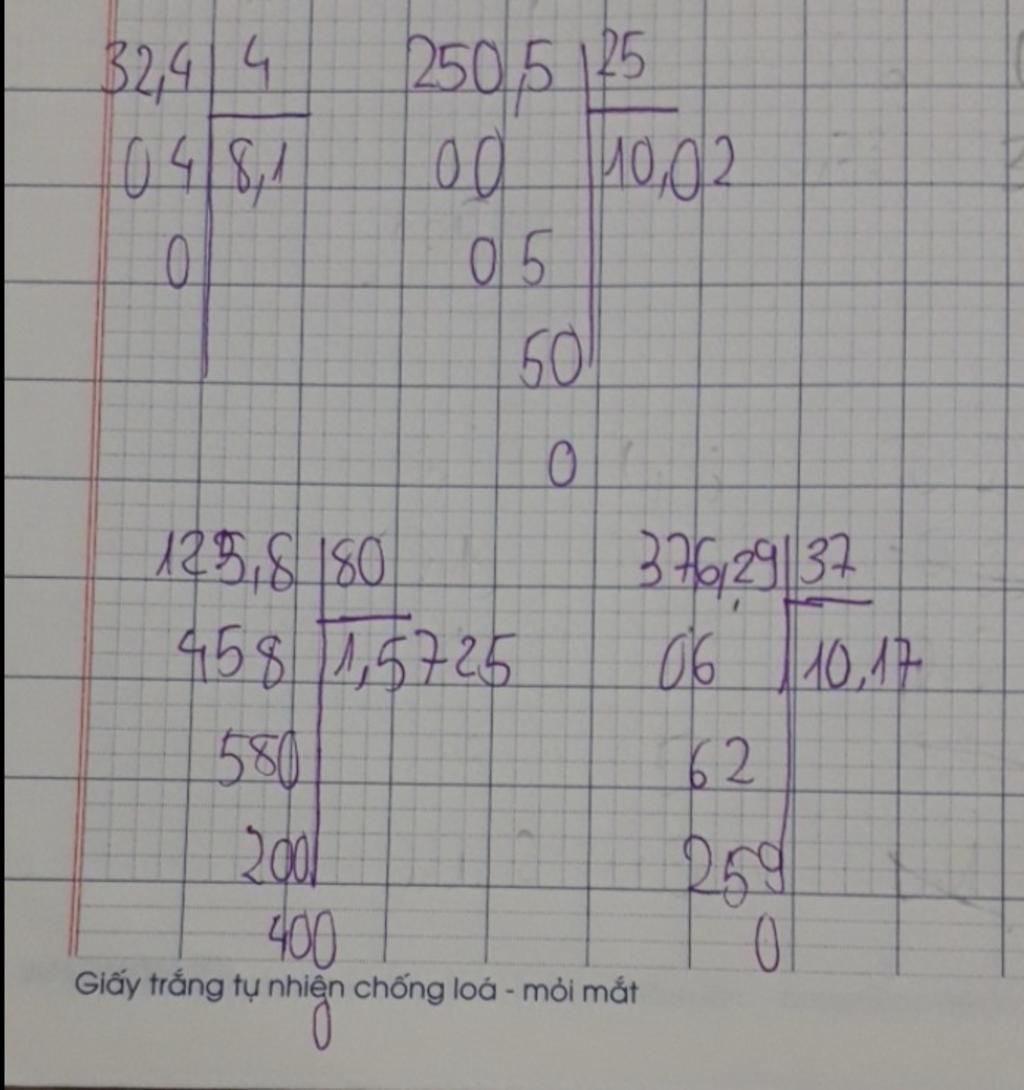 32,4 4 250,5 25
04 8,1 00 10,02
0 05
50
0
125,8 80 376,29 37
458 1,5725 06 10,17
580 62
200 259
400 0
Giấy trắng tự nhiên chống loá - mỏi mắt
0